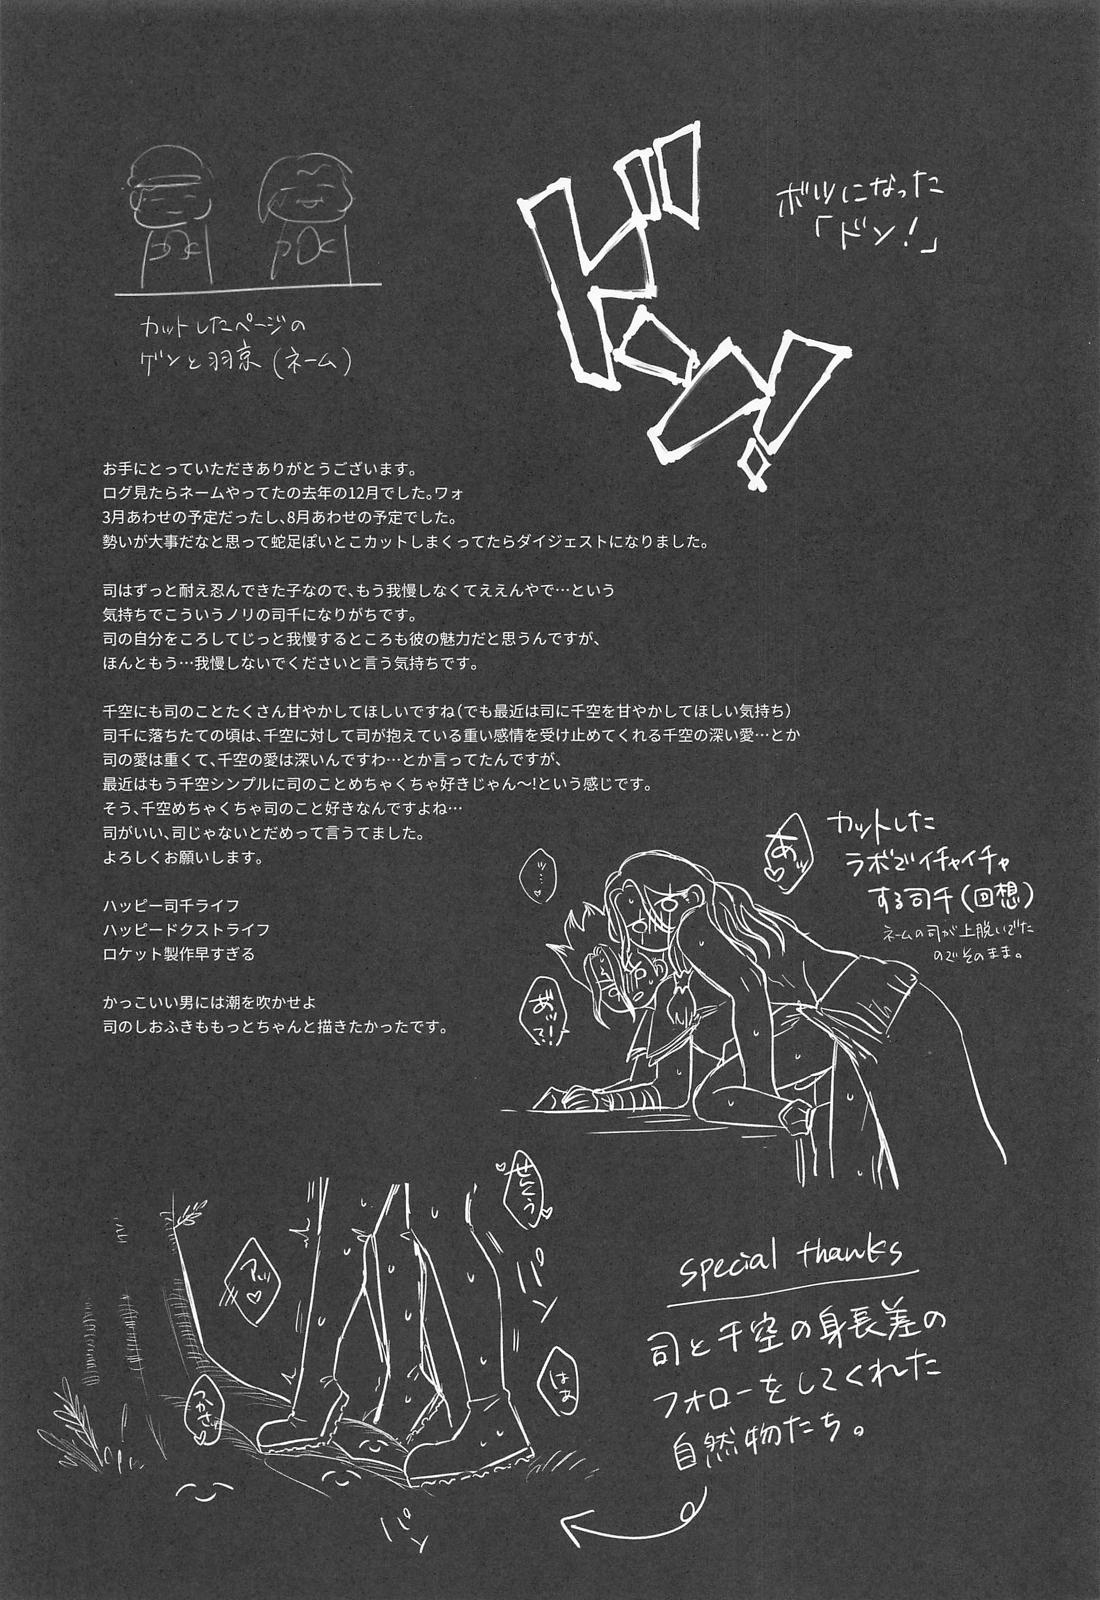 ドン!
ボツになった
「ドン!」
カットしたページの
ゲンと羽京(ネーム)
お手にとっていただきありがとうございます。
ログ見たらネームやってたの去年の12月でした。ワォ
3月あわせの予定だったし、8月あわせの予定でした。
勢いが大事だなと思って蛇足ぽいとこカットしまくってたらダイジェストになりました。
司はずっと耐え忍んできた子なので、もう我慢しなくてええんやで…という
気持ちでこういうノリの司千になりがちです。
司の自分をころしてじっと我慢するところも彼の魅力だと思うんですが、
ほんともう…我慢しないでくださいと言う気持ちです。
千空にも司のことたくさん甘やかしてほしいですね(でも最近は司に千空を甘やかしてほしい気持ち)
司千に落ちたての頃は、千空に対して司が抱えている重い感情を受け止めてくれる千空の深い愛…とか
司の愛は重くて、千空の愛は深いんですわ…とか言ってたんですが、
最近はもう千空シンプルに司のことめちゃくちゃ好きじゃん〜!という感じです。
そう、千空めちゃくちゃ司のこと好きなんですよね…
司がいい、司じゃないとだめって言うてました。
よろしくお願いします。
ハッピー司千ライフ
ハッピードクストライフ
ロケット製作早すぎる
かっこいい男には潮を吹かせよ
司のしおふきももっとちゃんと描きたかったです。
カットした
ラボでイチャイチャ
する司千(回想)
ネームの司が上脱いでた
のでそのまま。
あッ♡
ッ…♡
あ゛ッ…!
せんくう
アッ♡
パン
はあ
つかさ
パン
special thanks
司と千空の身長差の
フォローをしてくれた
自然物たち。